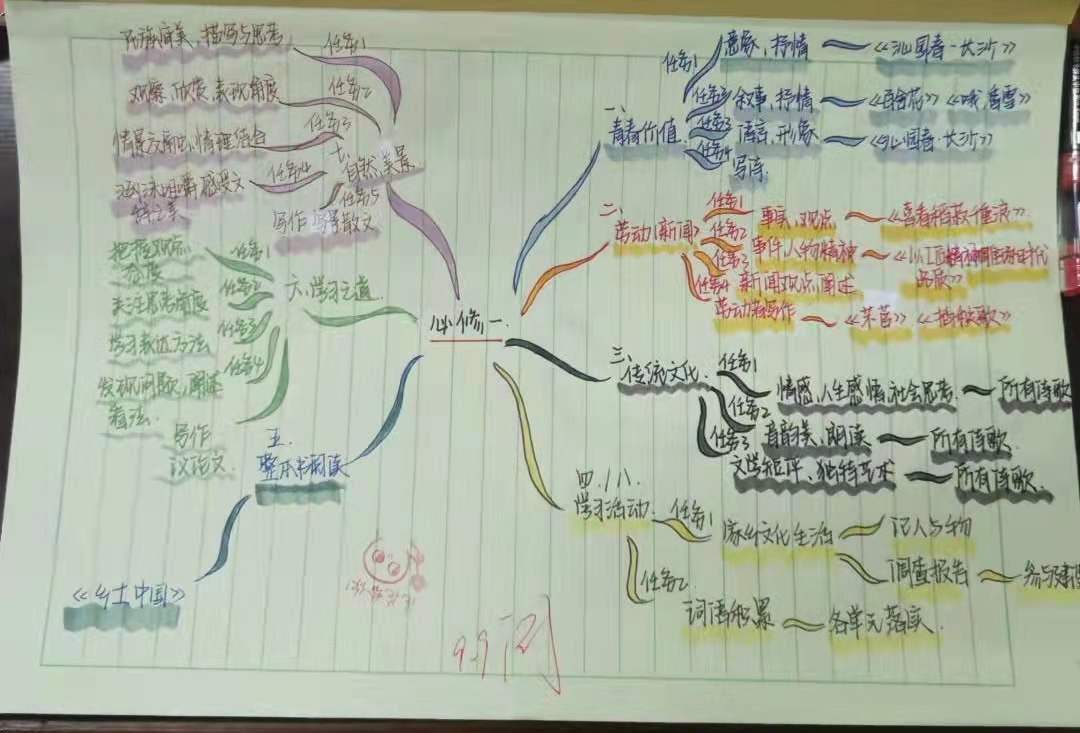 必修一
一、
青春价值
任务1
意象,抒情
《沁园春·长沙》
任务2
叙事,抒情
《百合花》《哦,香雪》
任务3
语言,形象
《沁园春·长沙》
任务4
写诗
二、
劳动(新闻)
任务1
事实,观点
《喜看稻菽千重浪》
任务2
事件人物精神
《以工匠精神雕琢时代
品质》
任务3
新闻观点,阐述
任务4
劳动者写作
《芣苢》《插秧歌》
三、
传统文化
任务1
情感,人生感悟,社会思考
所有诗歌
任务2
音韵美、朗读
所有诗歌
任务3
文学短评、独特艺术
所有诗歌
四、八、
学习活动
任务1
家乡文化生活
记人与物
调查报告
参与建
任务2
词语积累
各单元落实
五、
整本书阅读
《乡土中国》
六、学习之道
任务1
把握观点
态度
任务2
关注思考角度
任务3
学习表达方法
任务4
发现问题,阐述
看法
写作
议论文
七、
自然,美景
任务1
民族审美,描写与思考
任务2
观察,欣赏,表现角度
任务3
情景交融,情理结合
任务4
涵泳咀嚼感受文
辞之美
任务5
写作 写景散文